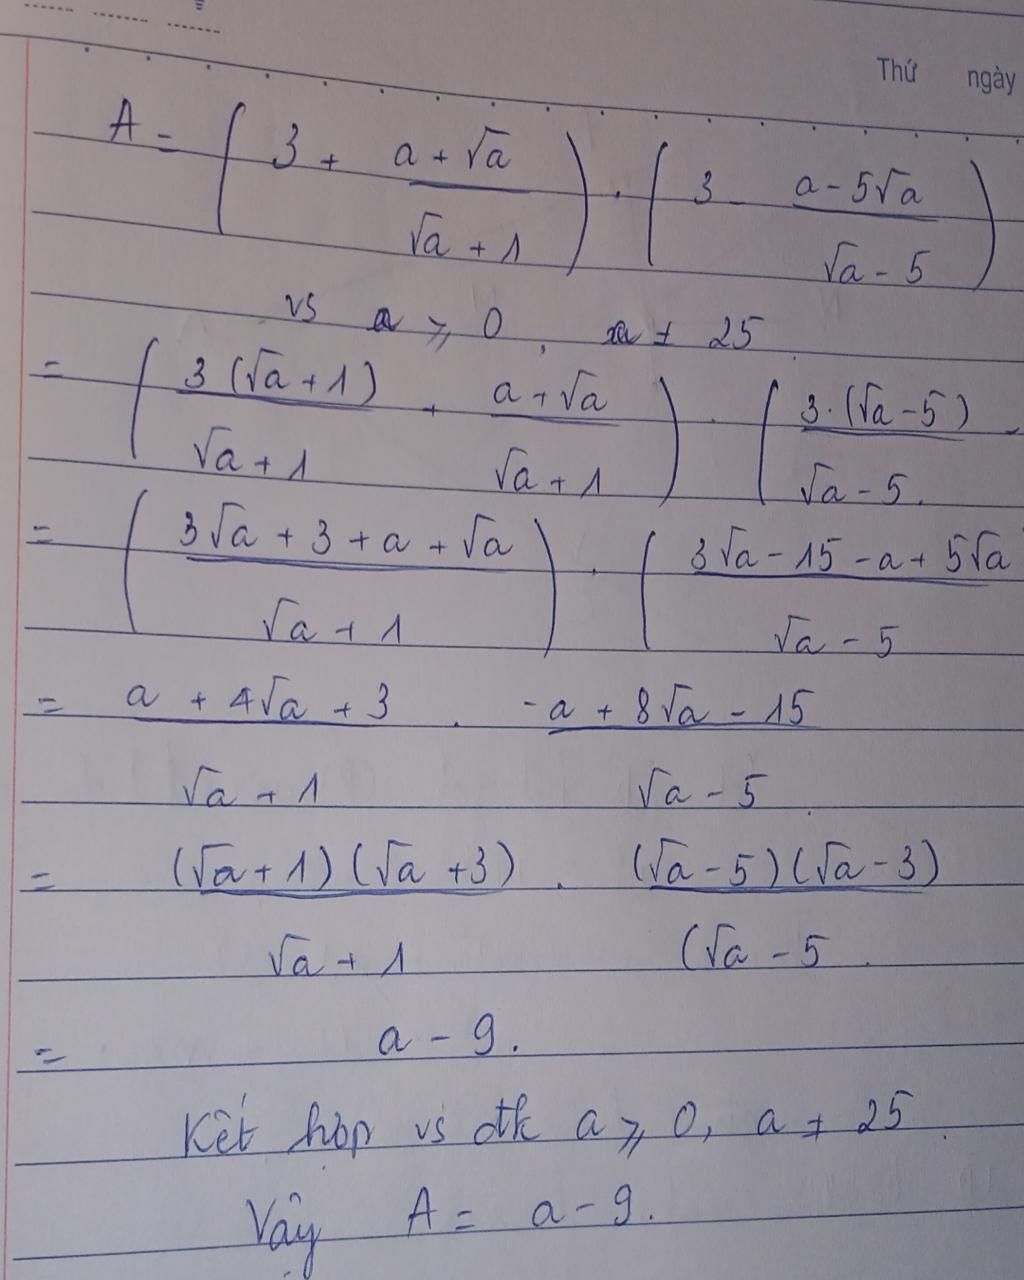 Thứ ngày
A = ( 3 + (a + √a)/(√a + 1) ) . ( 3 - (a - 5√a)/(√a - 5) )
vs a ⩾ 0, a ≠ 25
= ( 3(√a + 1)/(√a + 1) + (a + √a)/(√a + 1) ) . ( 3.(√a - 5)/(√a - 5) -
= ( (3√a + 3 + a + √a)/(√a + 1) ) . ( (3√a - 15 - a + 5√a)/(√a - 5)
= (a + 4√a + 3)/(√a + 1) . (-a + 8√a - 15)/(√a - 5)
= (√a + 1)(√a + 3)/(√a + 1) . (√a - 5)(√a - 3)/(√a - 5
= a - 9.
Kết hợp vs đk a ⩾ 0, a ≠ 25
Vậy A = a - 9.